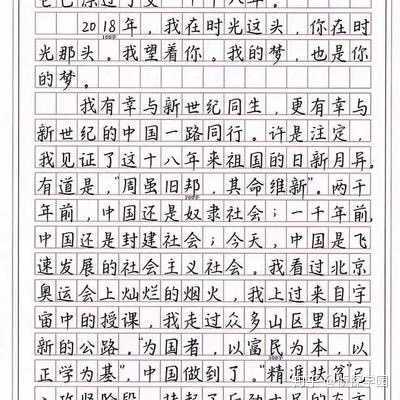 十八年。
2018年，我在时光这头，你在时
光那头。我望着你。我的梦，也是你
的梦。
我有幸与新世纪同生，更有幸与
新世纪的中国一路同行。许是注定，
我见证了这十八年来祖国的日新月异。
有道是，“周虽旧邦，其命维新”。两千
年前，中国还是奴隶社会；一千年前，
中国还是封建社会；今天，中国是飞
速发展的社会主义社会。我看过北京
奥运会上灿烂的烟火，我上过来自宇
宙中的授课，我走过众多山区里的崭
新的公路。“为国者，以富民为本，以
正学为基”，中国做到了。“精准扶贫”
攻坚阶段，